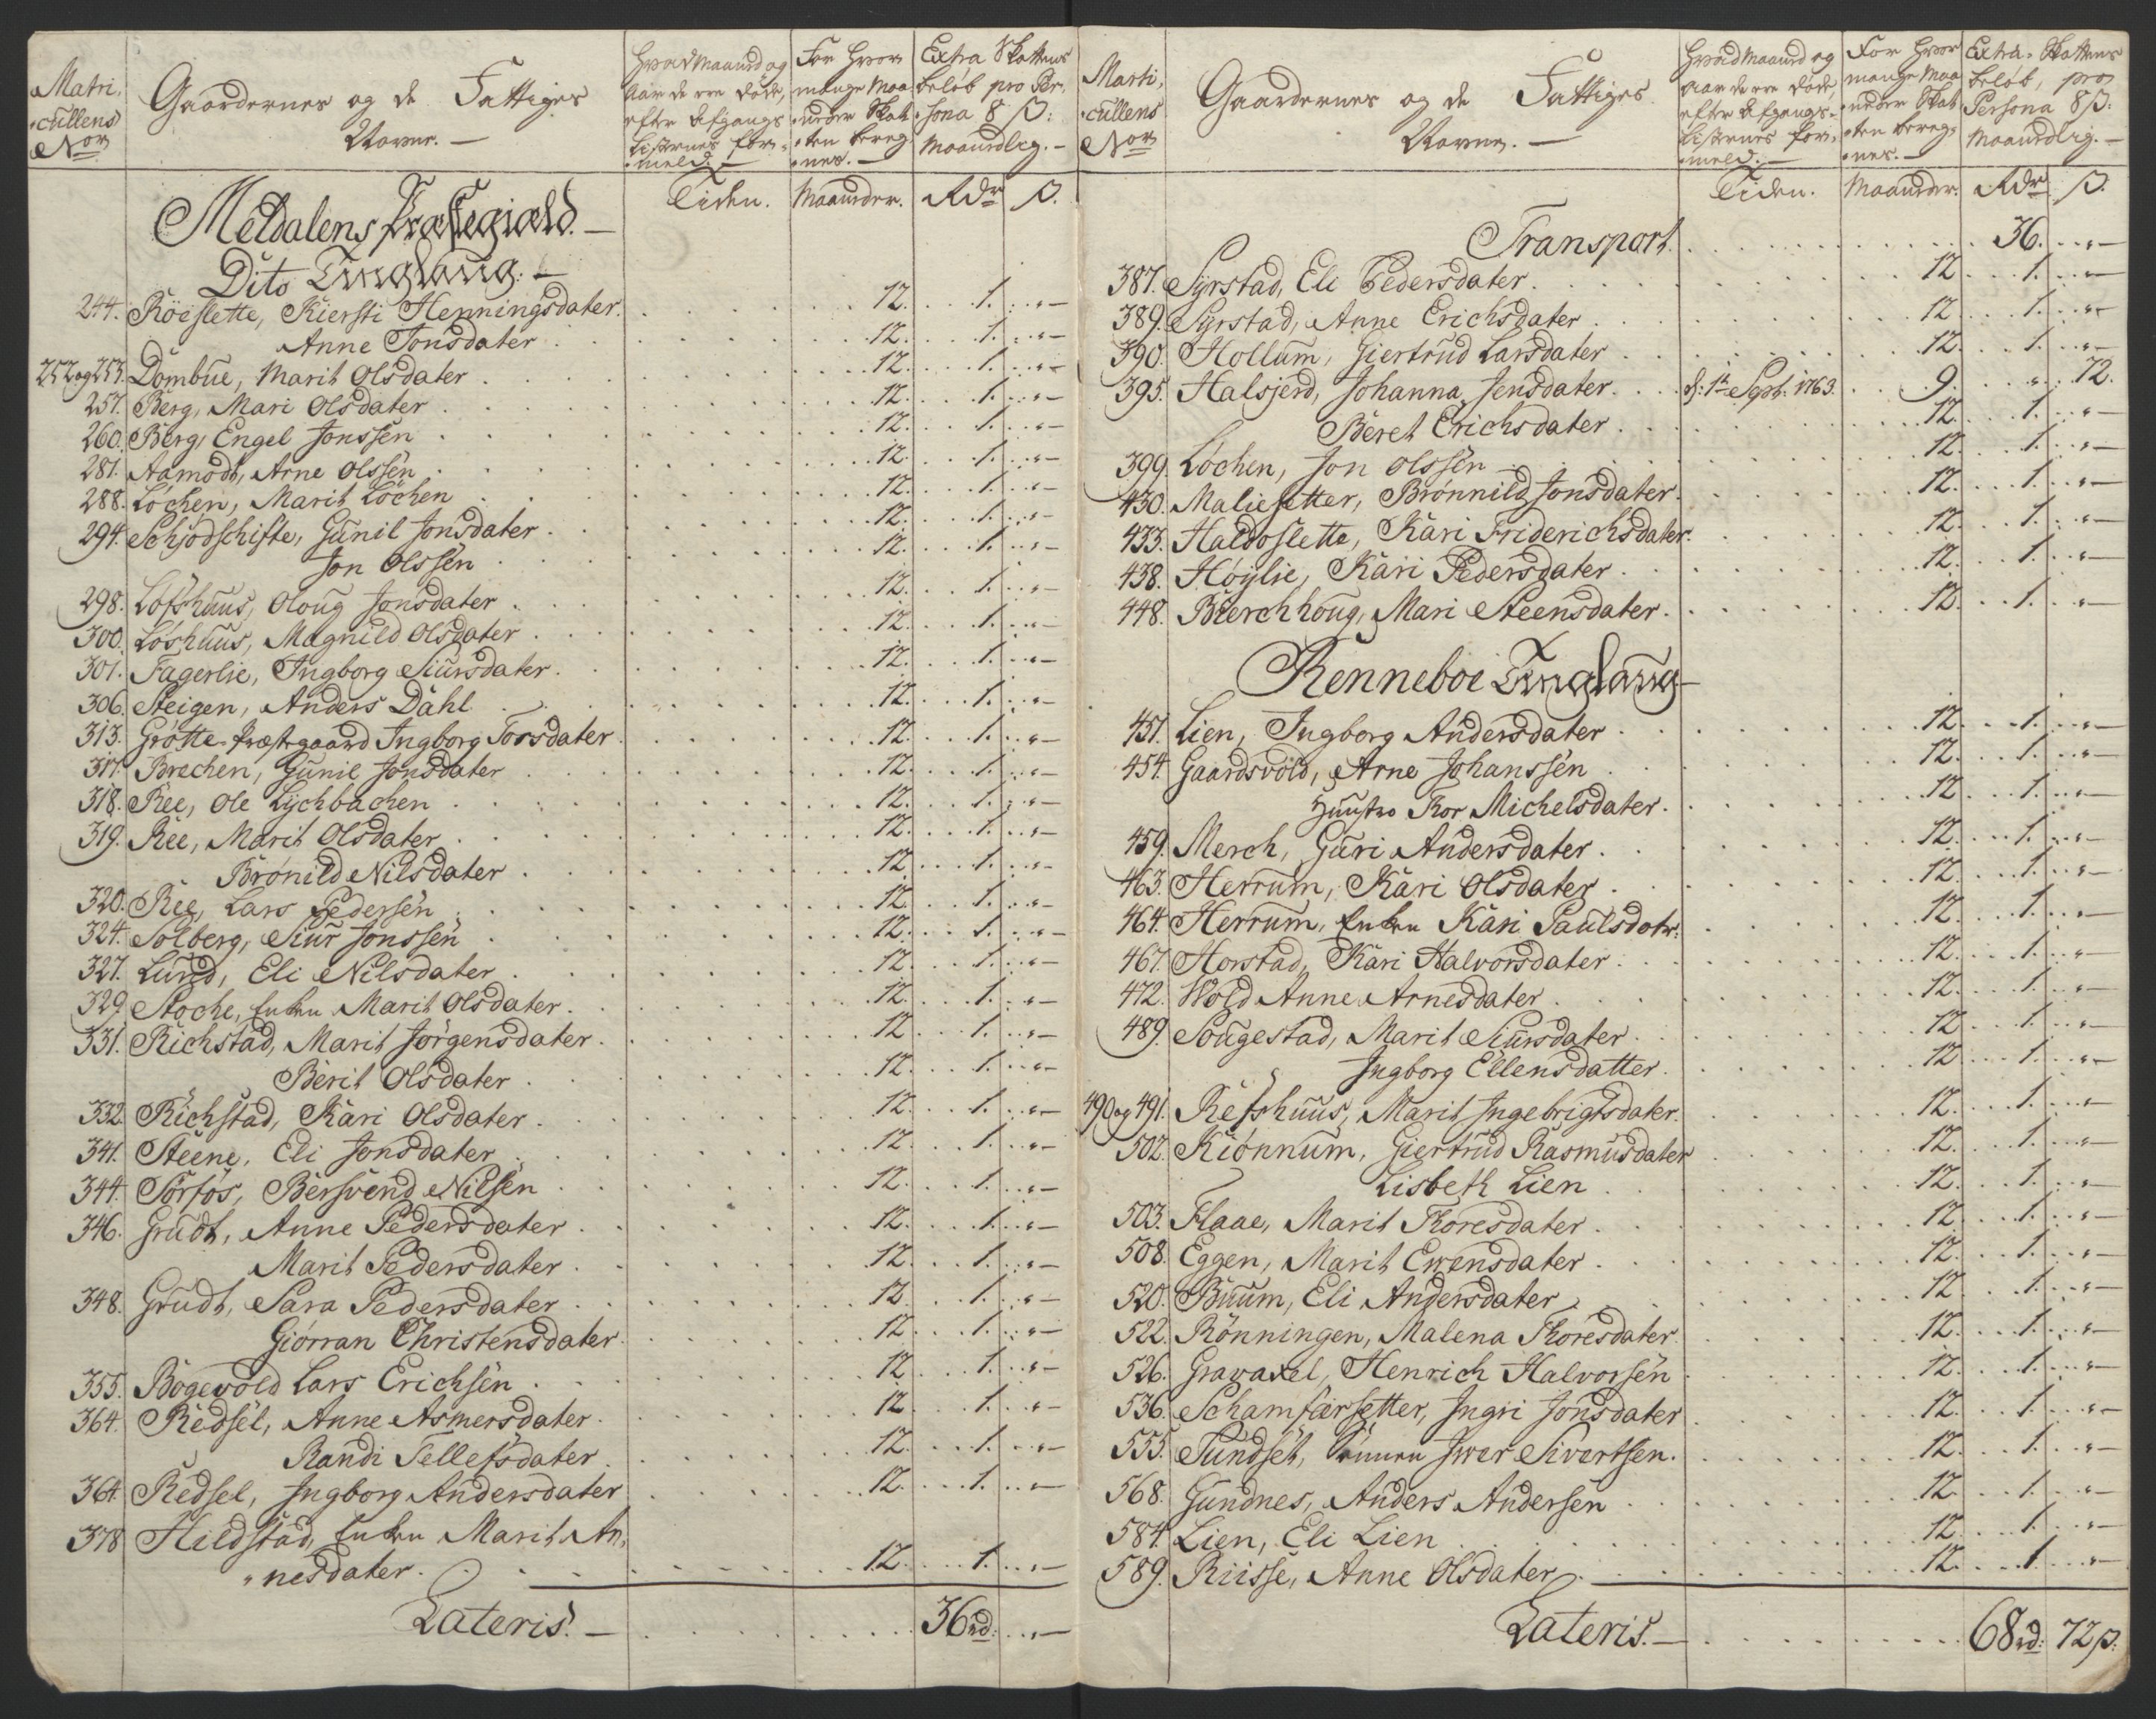 Matri,
cullens
Nor
Gaardernes og de Fattiges
Navne. —
Hvad Maaned og
Aar de ere døde,
efter Afgangs
Listernes for-
meld. —
For hvor
mange Maa
neder Skat
ten bereg
nes. —
Extra Skattens
beløb pro Per,
sona 8 β:
Maanedlig. —
Tiden. Maaneder. Rdr β.
Meldalens Præstegield. —
Dito Tinglaug. —
244. Röislette, Kiersti Henningsdater. 12. 1. „ —
Anne Jonsdater 12. 1. „ —
252 og 253. Dombue, Marit Olsdater 12. 1. „ —
257. Berg, Mari Olsdater 12. 1. „ —
260. Berg, Engel Jonssen 12. 1. „ —
281. Aamodt, Arne Olssen 12. 1. „ —
288. Löchen, Marit Löchen 12. 1. „ —
294. Schjödschifte, Gunil Jonsdater 12. 1. „ —
Jon Olssen 12. 1. „ —
298. Löfshuus, Oloug Jonsdater 12. 1. „ —
300. Löshuus, Magnild Olsdater 12. 1. „ —
301. Fagerlie, Ingborg Siursdater 12. 1. „ —
306. Steigen, Anders Dahl 12. 1. „ —
313. Grötte Præstegaard Ingborg Torsdater 12. 1. „ —
317. Brechen, Gunil Jonsdater 12. 1. „ —
318. Ree, Ole Lychbachen 12. 1. „ —
319. Ree, Marit Olsdater 12. 1. „ —
Brönild Nilsdater 12. 1. „ —
320. Ree, Lars Pedersen 12. 1. „ —
324. Solberg, Siur Jonssen 12. 1. „ —
327. Lund, Eli Nilsdater 12. 1. „ —
329. Stoche, Enken Marit Olsdater 12. 1. „ —
331. Richstad, Marit Jörgensdater 12. 1. „ —
Berit Olsdater 12. 1. „ —
332. Richstad, Kari Olsdater 12. 1. „ —
341. Steene, Eli Jonsdater 12. 1. „ —
344. Sörfös, Bersvend Nilsen 12. 1. „ —
346. Grudt, Anne Pedersdater 12. 1. „ —
Marit Pedersdater 12. 1. „ —
348. Grudt, Sara Pedersdater 12. 1. „ —
Giörran Christensdater 12. 1. „ —
355. Bögevold Lars Erichsen 12. 1. „ —
364. Redsel, Anne Asmersdater 12. 1. „ —
Randi Tellefsdater 12. 1. „ —
364. Redsel, Ingborg Andersdater 12. 1. „ —
378 Hildstad, Enken Marit Ar,
„nesdater. 12. 1. „ —
Lateris. — 36 rd: „ —
Marti,
cullens
Nor
Gaardernes og de Fattiges
Navne. —
Hvad Maaned og
Aar de ere døde,
efter Afgangs-
Listernes for-
meld. —
For hvor
mange Maa
neder Skat
ten bereg-
nes. —
Extra- Skattens
beløb, pro
Persona 8 β:
Maanedlig. —
Tiden. Maaneder. Rdr β.
Transport. 36. „ —
387. Syrstad, Eli Pedersdater 12. 1. „ —
389. Syrstad, Anne Erichsdater 12. 1. „ —
390. Hollum, Giertrud Larsdater 12. 1. „ —
395. Halsjerd, Johanna Jensdater d: 1te Sept: 1763. 9. „ 72.
Beret Erichsdater 12. 1. „ —
399. Löchen, Jon Olssen 12. 1. „ —
430. Maliesetter, Brönnild Jonsdater 12. 1. „ —
433. Haldoslette, Kari Friderichsdater 12. 1. „ —
438. Höylie, Kari Pedersdater 12. 1. „ —
448. Bierchhoug, Mari Steensdater 12. 1. „ —
Renneboe Tinglaug —
451. Lien, Ingborg Andersdater 12. 1. „ —
454. Gaardsvold, Arne Johanssen 12. 1. „ —
Huustro Thor Michelsdater 12. 1. „ —
459. Merch, Guri Andersdater 12. 1. „ —
463. Herrum, Kari Olsdater 12. 1. „ —
464. Herrum, Enken Kari Paulsdotr: 12. 1. „ —
467. Horstad, Kari Halvorsdater 12. 1. „ —
472. Wold Anne Arnesdater 12. 1. „ —
489. Sougestad, Marit Siursdater 12. 1. „ —
Ingborg Ellensdatter 12. 1. „ —
490 og 491. Refshuus, Marit Ingebrigtsdater 12. 1. „ —
502. Kiönnum, Giertrud Rasmusdater 12. 1. „ —
Lisbeth Lien 12. 1. „ —
503. Flaae, Marit Thoresdater 12. 1. „ —
508. Eggen, Marit Ewensdater 12. 1. „ —
520. Buum, Eli Andersdater 12. 1. „ —
522. Rönningen, Malena Thoresdater 12. 1. „ —
526. Gravaxel, Henrich Halvorsen 12. 1. „ —
536. Schamfærsetter, Ingri Jonsdater 12. 1. „ —
555. Sundset, Iwer Sivertsen. 12. 1. „ —
568. Gundnes, Anders Andersen 12. 1. „ —
584. Lien, Eli Lien 12. 1. „ —
589. Riisse, Anne Olsdater 12. 1. „ —
Lateris. — 68 rd: 72 β: